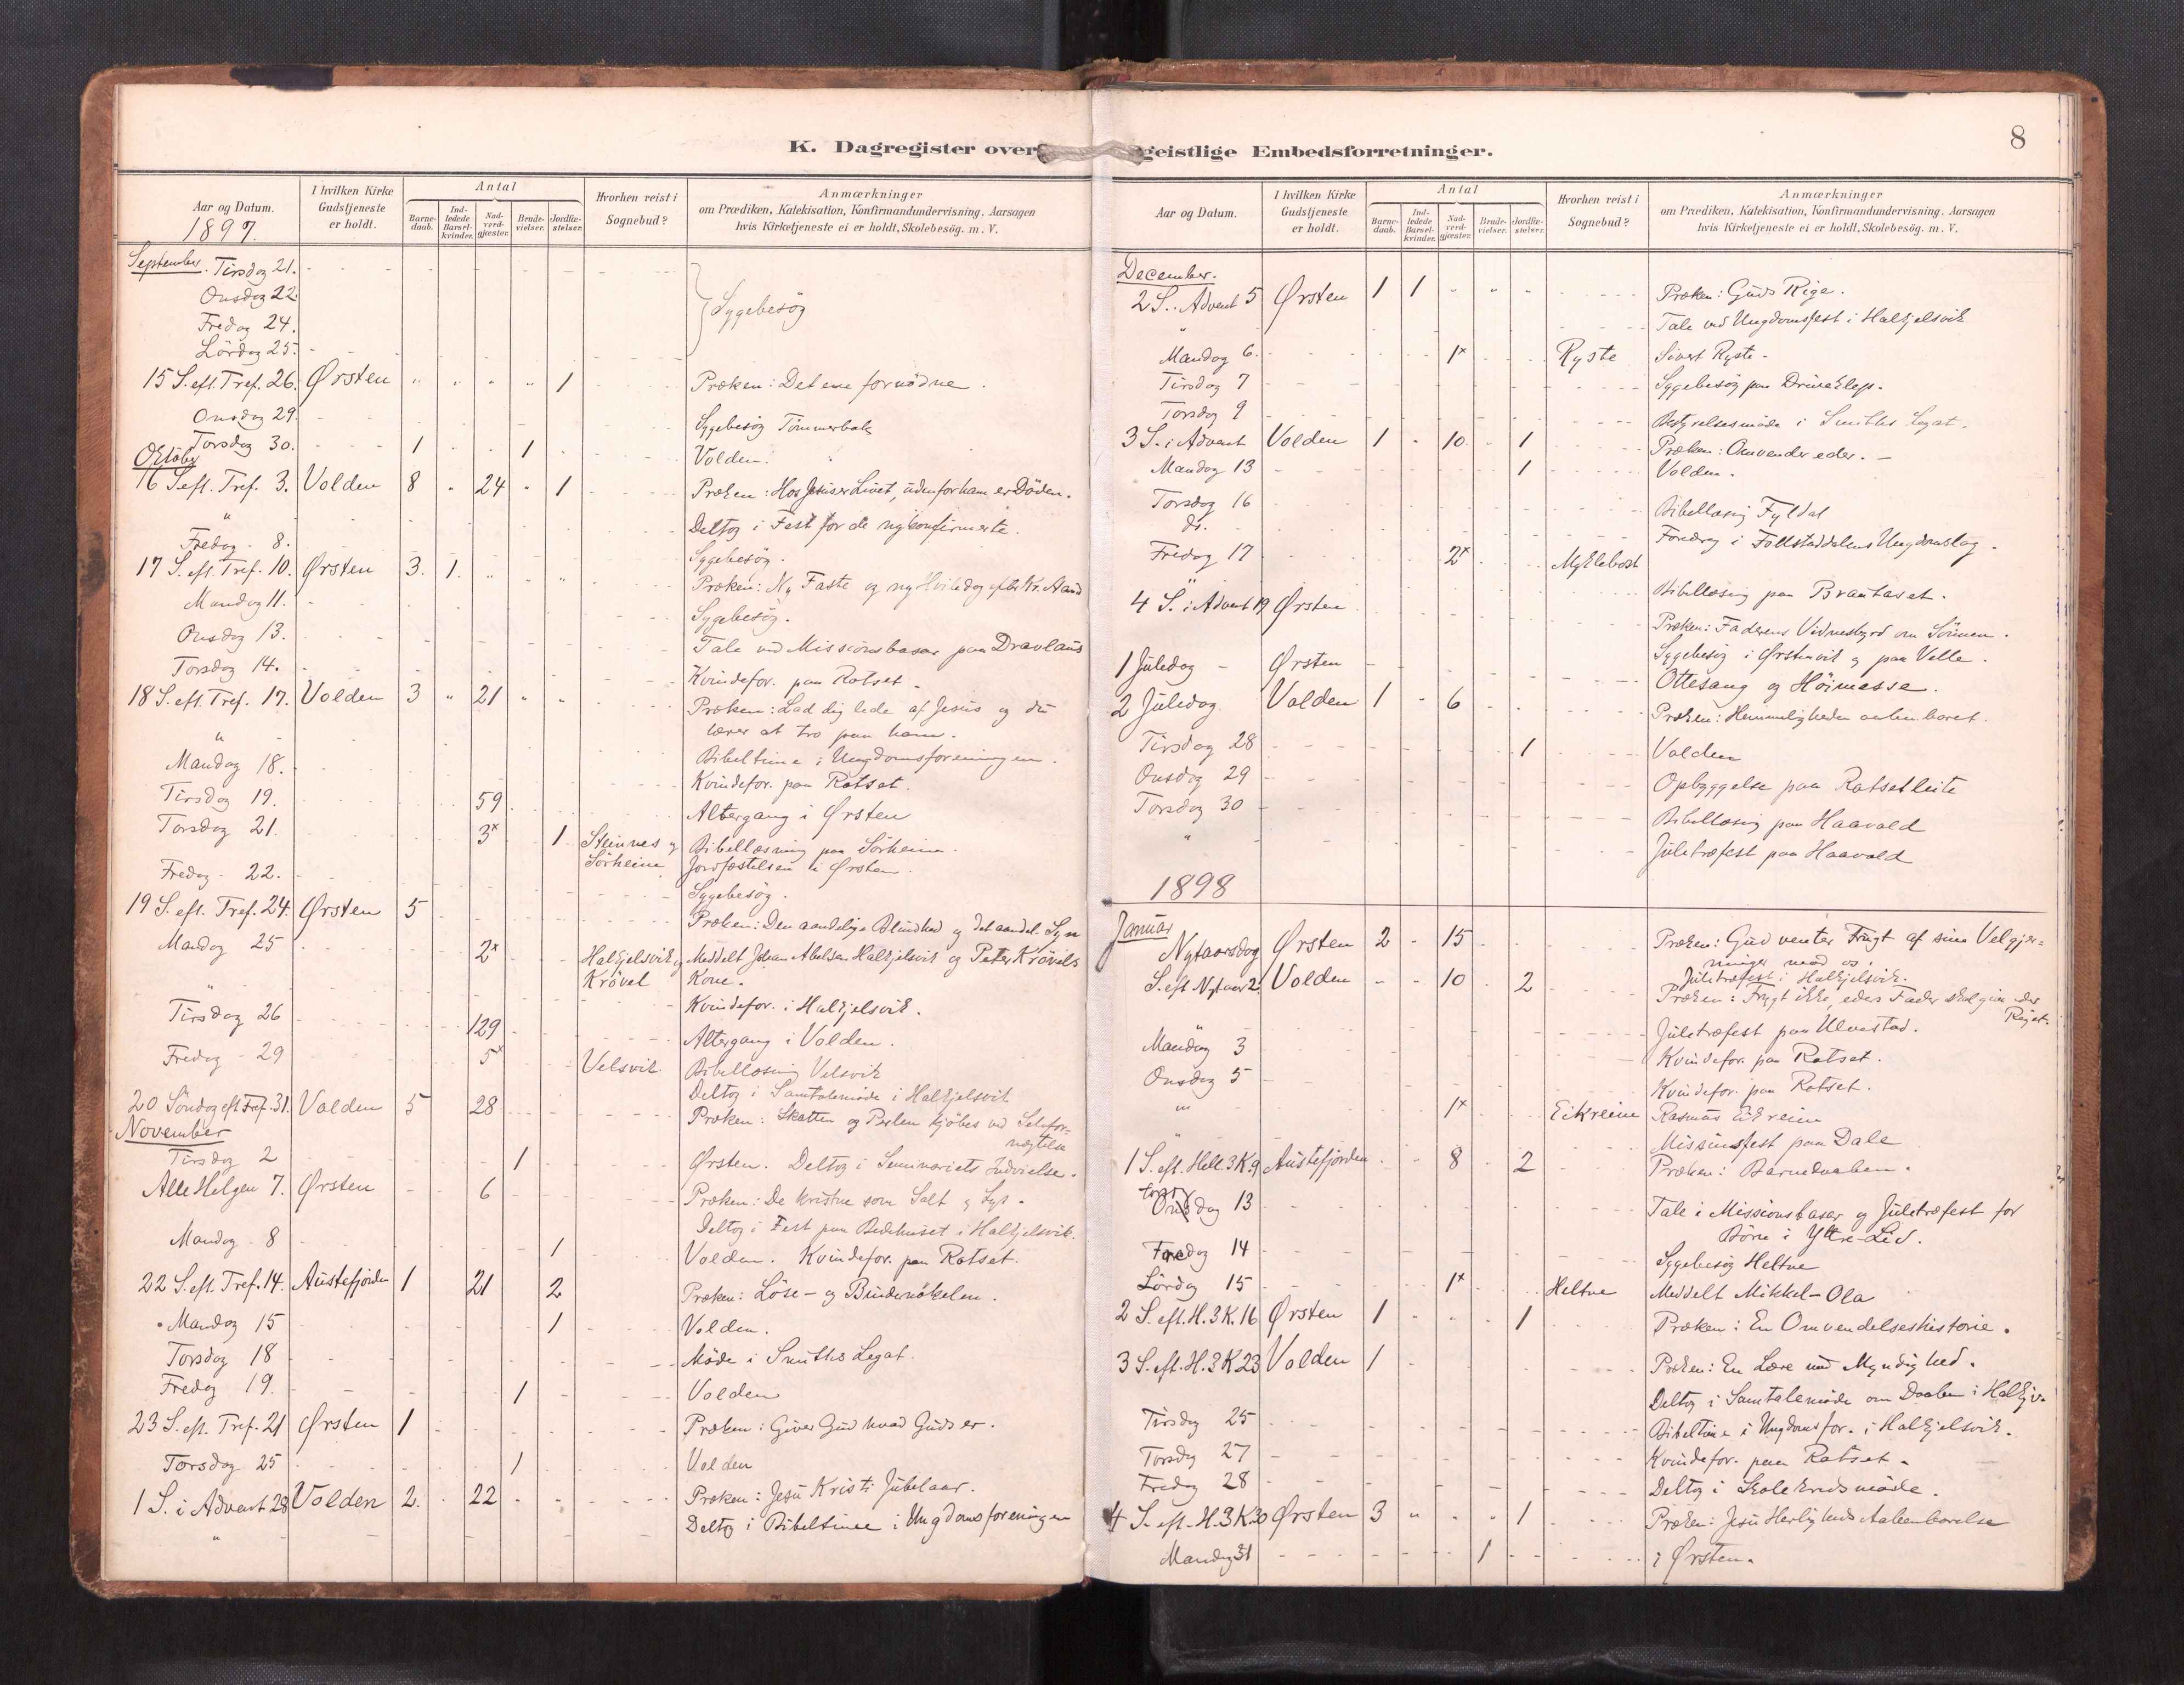 K. Dagregister over geistlige Embedsforretninger.
8
Aar og Datum.
1897.
I hvilken Kirke Gudstjeneste er holdt.
Antal
Barnedaab.
Indledede Barselkvinder.
Nadverdgjæster.
Brudevielser.
Jordfæstelser.
Hvorhen reist i Sognebud?
Anmærkninger
om Prædiken, Katekisation, Konfirmandundervisning, Aarsagen
hvis Kirketjeneste ei er holdt, Skolebesøg. m. V.
September. Tirsdag 21.
Onsdag 22.
Fredag 24. Sygebesög
Lördag 25.
15 S. eft. Tref. 26. Ørsten " " " " 1 Præken: Det ene fornödne.
Onsdag 29. Sygebesög Tömmerbak
Torsdag 30. 1 1 Volden.
Oktober
16 S eft. Tref. 3. Volden 8 " 24 " 1 Præken: Hos Jesus er Livet, udenfor ham er Döden.
" Deltog i Fest for de nykonfirmerte.
Fredag 8. Sygebesög.
17 S. eft. Tref. 10. Ørsten 3. 1. " " " Præken: Ny Faste og ny Hviledag efter Kr. Aand
Mandag 11. Sygebesög.
Onsdag 13. Tale ved Missionsbasar paa Dravlaus
Torsdag 14. Kvindefor. paa Rotset.
18 S. eft. Tref. 17. Volden 3 " 21 " " Præken: Lad dig lede af Jesus og du
lærer at tro paa ham.
" Bibeltime i Ungdomsforeningen.
Mandag 18. Kvindefor. paa Rotset.
Tirsdag 19. 59 Altergang i Ørsten
Torsdag 21. 3x 1 Steinnes og Bibellæsning paa Sörheim.
Sörheim Jordfæstelsen i Ørsten.
Fredag 22. Sygebesög.
19 S. eft. Tref. 24. Ørsten 5 Præken: Den aandelige Blindhed og det aandel. Syn
Mandag 25 2x Halkjelsvik og Meddelt Johan Abelsen Halkjelsvik og Peter Krövels
Krövel Kone.
" Kvindefor. i Halkjelsvik.
Tirsdag 26 129 Altergang i Volden.
Fredag 29 5x Velsvik Bibellæsning Velsvik
Deltog i Samtalemöde i Halkjelsvik
20 Söndag eft. Tref. 31. Volden 5 28 Præken: Skatten og Perlen kjöbes ved Selvfor-
nægtelse
November
Tirsdag 2 1 Ørsten. Deltog i Seminariets Indvielse.
Alle Helgen 7. Ørsten 6 Præken: De kristne som Salt og Lys.
Deltog i Fest paa Bedehuset i Halkjelsvik.
Mandag 8 1 Volden. Kvindefor. paa Rotset.
22 S. eft. Tref. 14. Austefjorden 1 21 2 Præken: Löse- og Bindenökelen.
Mandag 15 1 Volden.
Torsdag 18 Möde i Smiths Legat.
Fredag 19. 1 Volden
23 S. eft. Tref. 21 Ørsten 1 Præken: Giver Gud hvad Guds er.
Torsdag 25 1 Volden
1 S. i Advent 28 Volden 2. 22 Præken: Jesu Kristi Jubelaar.
" Deltog i Bibeltime i Ungdomsforeningen
Aar og Datum.
I hvilken Kirke Gudstjeneste er holdt.
Antal
Barnedaab.
Indledede Barselkvinder.
Nadverdgjæster.
Brudevielser.
Jordfæstelser.
Hvorhen reist i Sognebud?
Anmærkninger
om Prædiken, Katekisation, Konfirmandundervisning, Aarsagen
hvis Kirketjeneste ei er holdt, Skolebesøg. m. V.
December.
2 S. Advent 5 Ørsten 1 1 " " " Præken: Guds Rige.
" Tale ved Ungdomsfest i Halkjelsvik
Mandag 6. 1x Ryste Sivert Ryste.
Tirsdag 7 Sygebesög paa
Torsdag 9 Bestyrelsesmöde i Smiths Legat.
3 S. i Advent Volden 1 " 10 " 1 Præken: Omvender eder.
Mandag 13 1 Volden.
Torsdag 16 Bibellæsnig Fyldal
do. Foredrag i Folkestaddalens Ungdomslag.
Fredag 17 2x Myklebost
" Bibellæsnig paa Brautaset.
4 S. i Advent 19 Ørsten Præken: Faderens Vidnesbyrd om Sönnen.
Sygebesög i Ørstenvik og paa Velle.
1 Juledag Ørsten Ottesang og Höimesse.
2 Juledag. Volden 1 6 Præken: Hemmeligheden aabenbaret.
Tirsdag 28 1 Volden
Onsdag 29 Opbyggelse paa Rotsetleite
Torsdag 30 Bibellæsnig paa Haavold
" Juletræfest paa Haavold
1898
Januar
Nytaarsdag Ørsten 2 15 Præken: Gud venter Frugt af sine Velgjer-
ninger mod os.
Juletræfest i Halkjelsvik.
S. eft Nytaar 2. Volden 10 2 Præken: Frygt ikke, eders Fader skal give eder
Riget.
Juletræfest paa Ulvestad.
Mandag 3 Kvindefor. paa Rotset.
Onsdag 5 Kvindefor. paa Rotset.
" 1x Eikreim Rasmus Eikreim
" Missionsfest paa Dale
1 S. eft. Hell. 3 K. 9 Austefjorden 8 2 Præken: Barnedaaben.
Torsdag 13 Tale i Missionsbasar og Juletræfest for
Börn i Ytre-Lid.
Fredag 14 Sygebesög Heltne
Lördag 15 1x Heltne Meddelt Mikkel-Ola
2 S. eft. H. 3 K. 16 Ørsten 1 " " 1 Præken: En Omvendelseshistorie.
3 S. eft. H. 3 K 23 Volden 1 Præken: En Lære med Myndighed.
Deltog i Samtalemöde om Daaben i Halkjv.
Tirsdag 25 Bibeltime i Ungdomsfor. i Halkjelsvik.
Torsdag 27 Kvindefor. paa Rotset.
Fredag 28 Deltog i Skolekredsmöde.
4 S. eft. H. 3 K. 30 Ørsten 3 " " " 1 Præken: Jesu Herligheds Aabenbarelse
Mandag 31 1 i Ørsten.